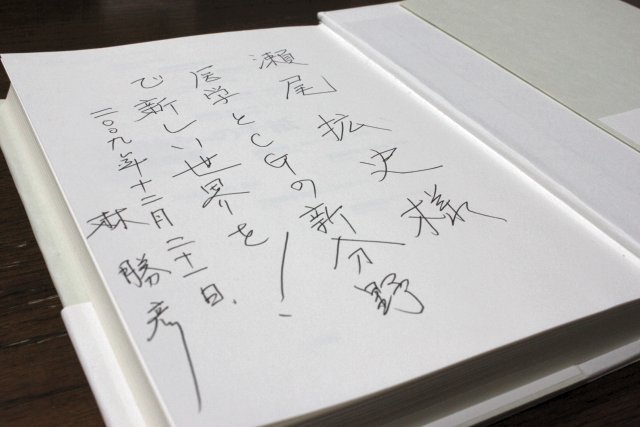 瀬尾拡史様
医学とCGの新分野
で新しい世界を!
二〇〇九年十二月二十一日
林勝彦